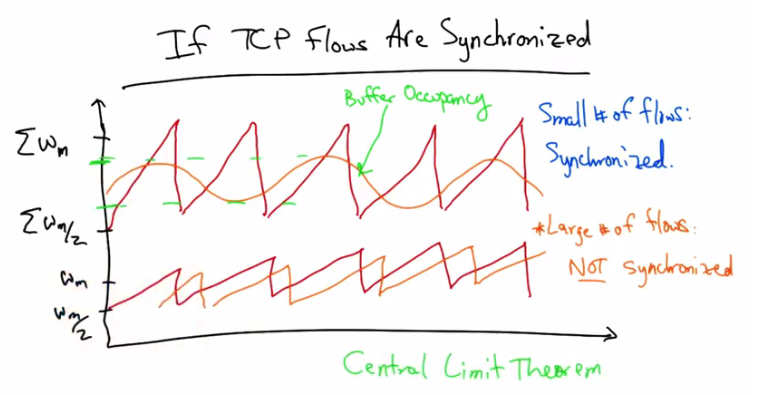 If TCP Flows Are Synchronized
Buffer Occupancy
Small # of flows:
Synchronized.
ΣWm
ΣWm/2
*Large # of flows:
NOT synchronized
Wm
Wm/2
Central Limit Theorem